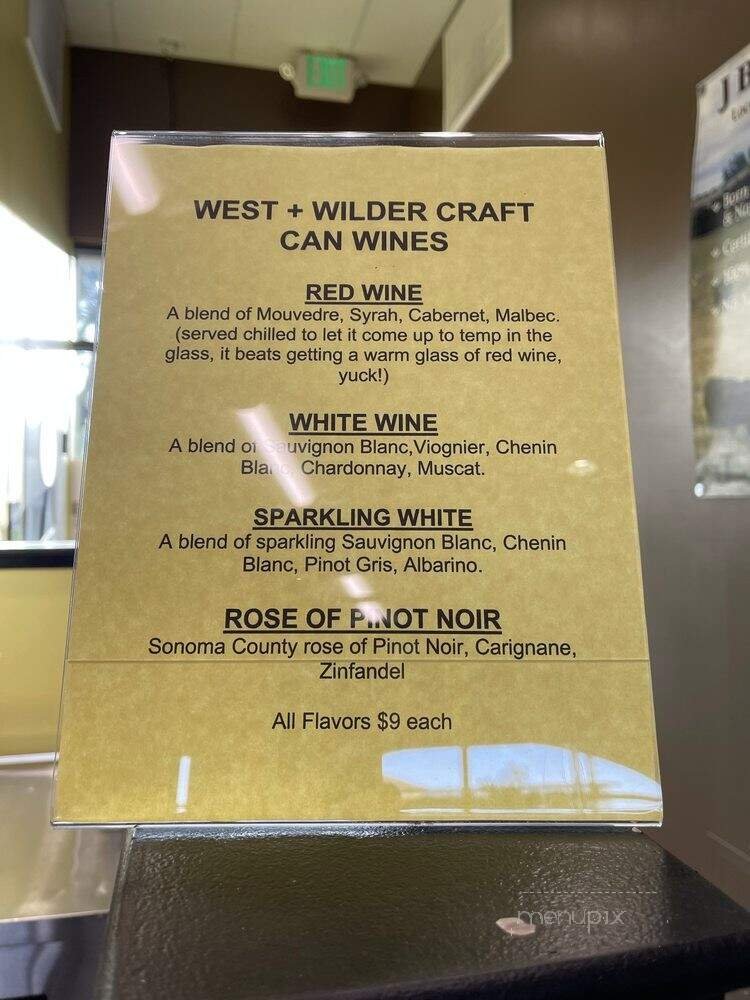 EXIT
WEST + WILDER CRAFT
CAN WINES
RED WINE
A blend of Mouvedre, Syrah, Cabernet, Malbec.
(served chilled to let it come up to temp in the
glass, it beats getting a warm glass of red wine,
yuck!)
WHITE WINE
A blend of Sauvignon Blanc,Viognier, Chenin
Blanc, Chardonnay, Muscat.
SPARKLING WHITE
A blend of sparkling Sauvignon Blanc, Chenin
Blanc, Pinot Gris, Albarino.
ROSE OF PINOT NOIR
Sonoma County rose of Pinot Noir, Carignane,
Zinfandel
All Flavors $9 each
menupix